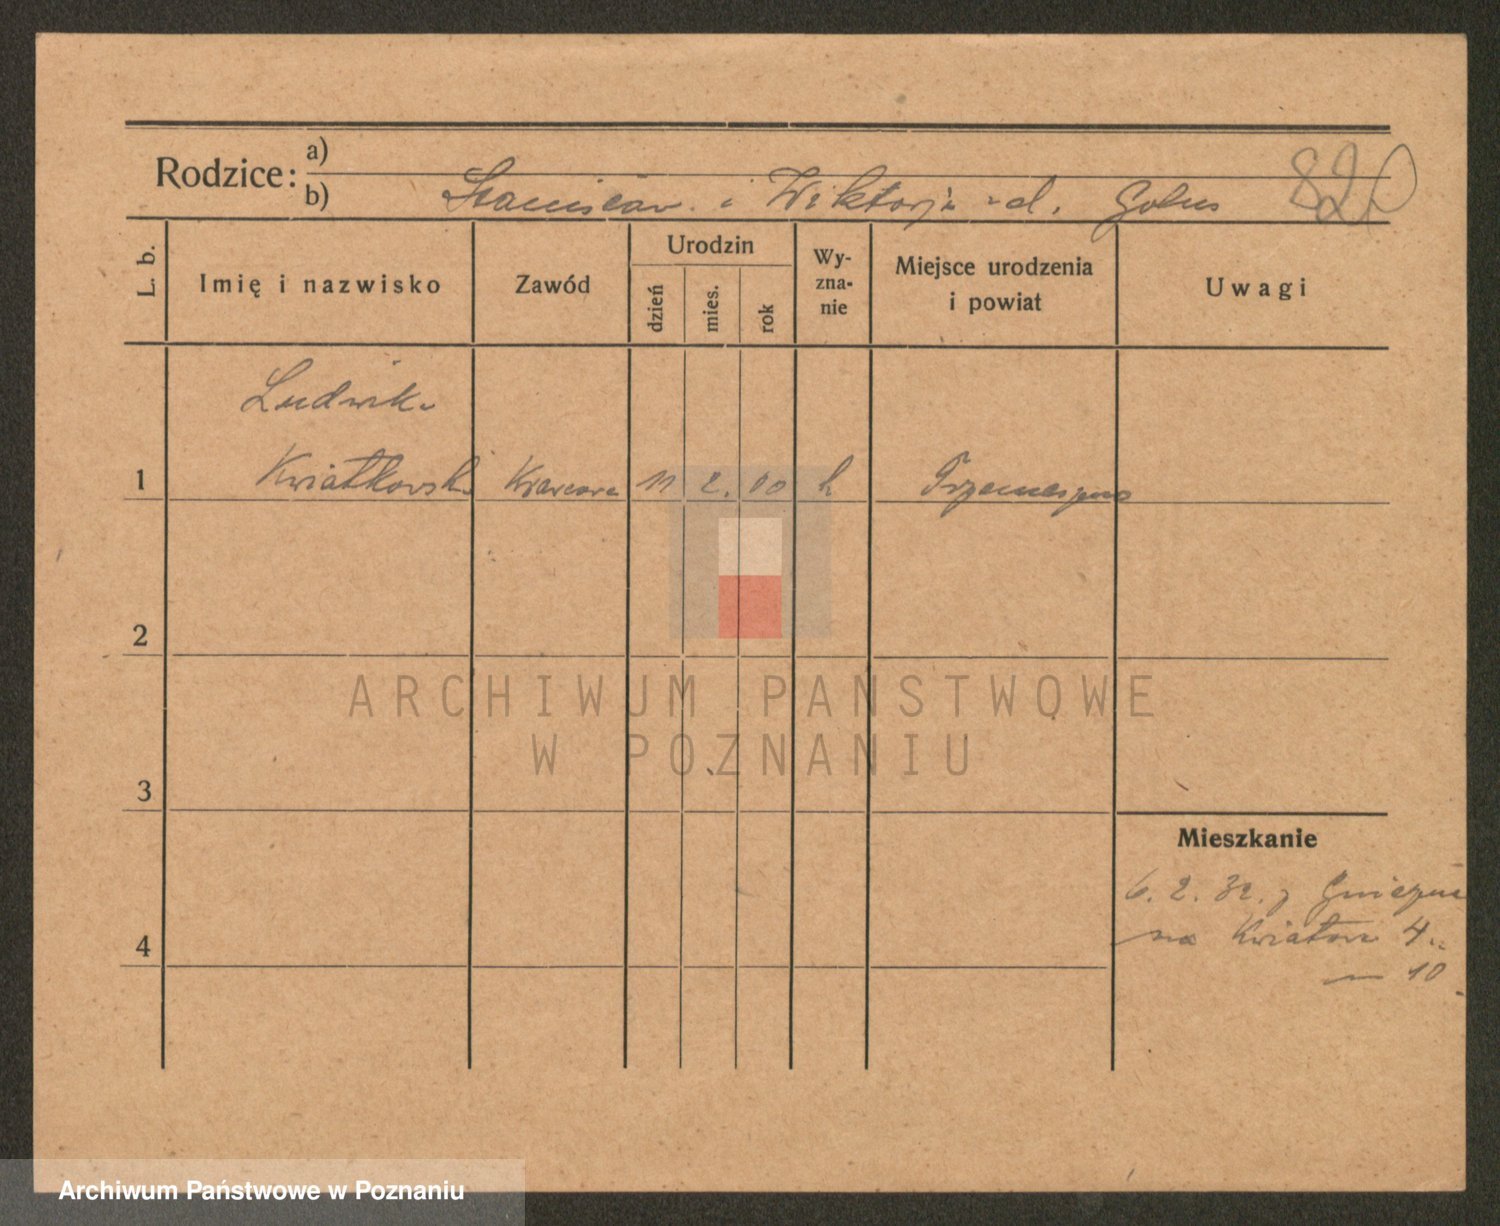 Rodzice:
a)
b) Stanisław i Wiktorja zd. Golus
820
L. b.
Imię i nazwisko
Zawód
Urodzin
dzień
mies.
rok
Wy-
zna-
nie
Miejsce urodzenia
i powiat
Uwagi
Ludwika
1 Kwiatkowska Krawcowa 11 2. 00 k Trzemeszno
2
3
4
Mieszkanie
6. 2. 32. z Gniezna
na Kwiatowa 4
10
ARCHIWUM PAŃSTWOWE
W POZNANIU
Archiwum Państwowe w Poznaniu